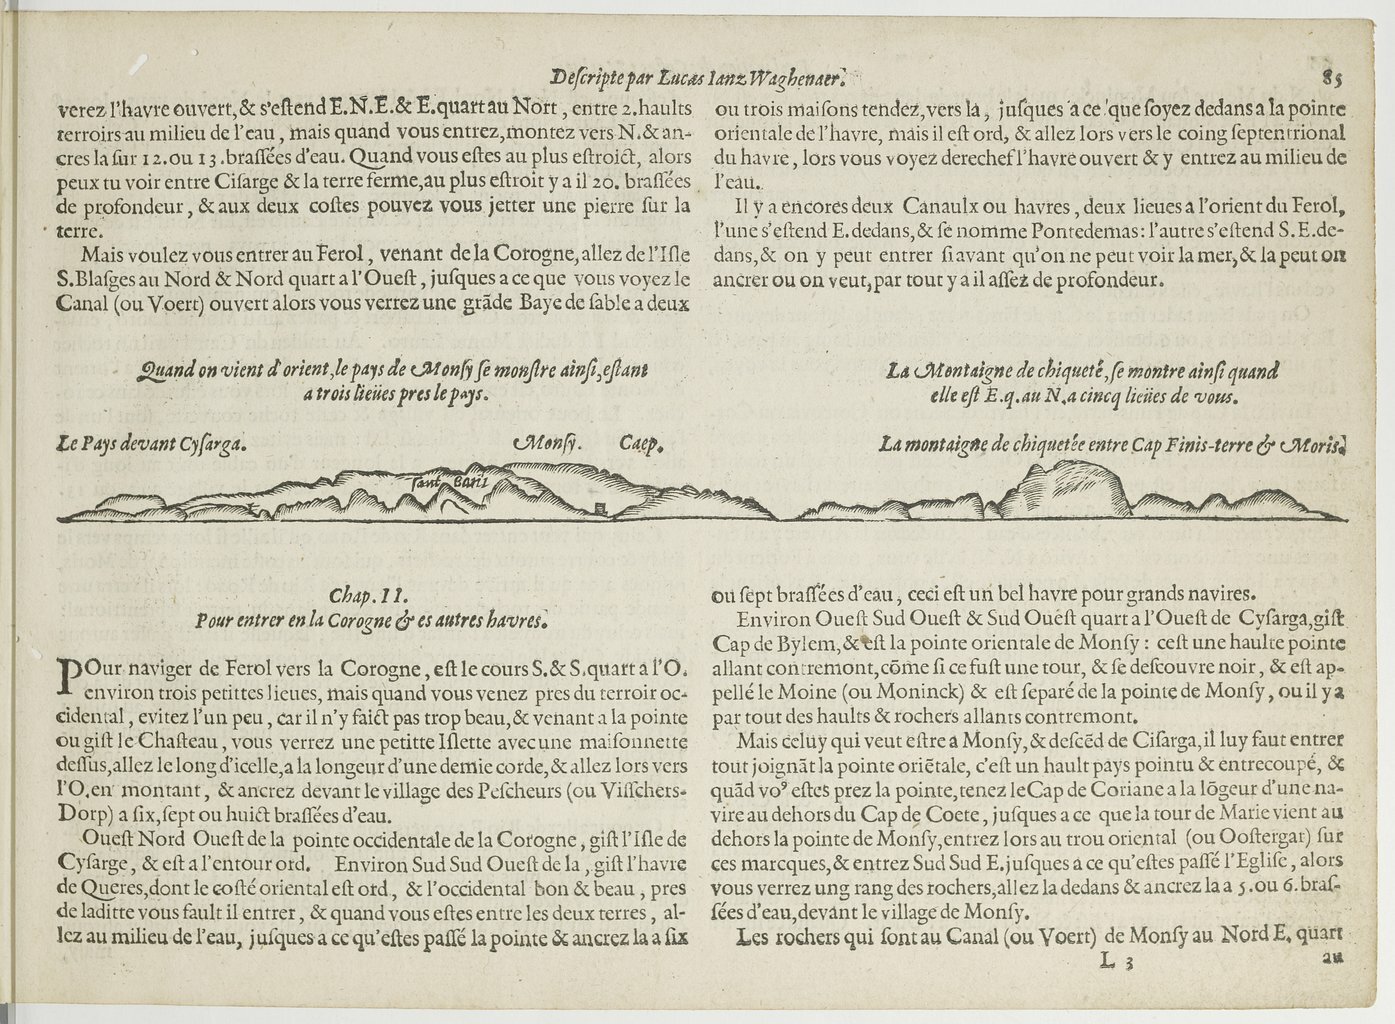 Descripte par Lucas Ianz Waghenaer.
85
verez l'havre ouvert, & s'eſtend E.N.E. & E. quart au Nort, entre 2. haults
terroirs au milieu de l'eau, mais quand vous entrez, montez vers N. & an-
cres la ſur 12. ou 13. braſſées d'eau. Quand vous eſtes au plus eſtroict, alors
peux tu voir entre Ciſarge & la terre ferme, au plus eſtroit y a il 20. braſſées
de profondeur, & aux deux coſtes pouvez vous jetter une pierre ſur la
terre.
Mais voulez vous entrer au Ferol, venant de la Corogne, allez de l'Iſle
S. Blaſges au Nord & Nord quart a l'Oueſt, juſques a ce que vous voyez le
Canal (ou Voert) ouvert alors vous verrez une grãde Baye de ſable a deux
ou trois maiſons tendez, vers la, juſques a ce que ſoyez dedans a la pointe
orientale de l'havre, mais il eſt ord, & allez lors vers le coing ſeptentrional
du havre, lors vous voyez derechef l'havre ouvert & y entrez au milieu de
l'eau.
Il y a encores deux Canaulx ou havres, deux lieues a l'orient du Ferol,
l'une s'eſtend E. dedans, & ſe nomme Pontedemas: l'autre s'eſtend S.E. de-
dans, & on y peut entrer ſi avant qu'on ne peut voir la mer, & la peut on
ancrer ou on veut, par tout y a il aſſez de profondeur.
Quand on vient d'orient, le pays de Monſy ſe monſtre ainſi, eſtant
a trois lieües pres le pays.
La Montaigne de chiqueté, ſe montre ainſi quand
elle eſt E.q. au N. a cincq lieües de vous.
Le Pays devant Cyſarga.
Monſy.
Caep.
La montaigne de chiquetée entre Cap Finis-terre & Moris.
ſant Barii
Chap. II.
Pour entrer en la Corogne & es autres havres.
POur naviger de Ferol vers la Corogne, eſt le cours S. & S. quart a l'O.
environ trois petittes lieues, mais quand vous venez pres du terroir oc-
cidental, evitez l'un peu, car il n'y faict pas trop beau, & venant a la pointe
ou giſt le Chaſteau, vous verrez une petitte Iſlette avec une maiſonnette
deſſus, allez le long d'icelle, a la longeur d'une demie corde, & allez lors vers
l'O. en montant, & ancrez devant le village des Peſcheurs (ou Viſſchers-
Dorp) a ſix, ſept ou huict braſſées d'eau.
Oueſt Nord Oueſt de la pointe occidentale de la Corogne, giſt l'Iſle de
Cyſarge, & eſt a l'entour ord. Environ Sud Sud Oueſt de la, giſt l'havre
de Queres, dont le coſté oriental eſt ord, & l'occidental bon & beau, pres
de laditte vous fault il entrer, & quand vous eſtes entre les deux terres, al-
lez au milieu de l'eau, juſques a ce qu'eſtes paſſé la pointe & ancrez la a ſix
ou ſept braſſées d'eau, ceci eſt un bel havre pour grands navires.
Environ Oueſt Sud Oueſt & Sud Oueſt quart a l'Oueſt de Cyſarga, giſt
Cap de Bylem, & eſt la pointe orientale de Monſy: ceſt une haulte pointe
allant contremont, cõme ſi ce fuſt une tour, & ſe deſcouvre noir, & eſt ap-
pellé le Moine (ou Moninck) & eſt ſeparé de la pointe de Monſy, ou il y a
par tout des haults & rochers allants contremont.
Mais celuy qui veut eſtre a Monſy, & deſcẽd de Ciſarga, il luy faut entrer
tout joignãt la pointe oriẽtale, c'eſt un hault pays pointu & entrecoupé, &
quãd voꝰ eſtes prez la pointe, tenez le Cap de Coriane a la lõgeur d'une na-
vire au dehors du Cap de Coete, juſques a ce que la tour de Marie vient au
dehors la pointe de Monſy, entrez lors au trou oriental (ou Ooſtergat) ſur
ces marcques, & entrez Sud Sud E. juſques a ce qu'eſtes paſſé l'Egliſe, alors
vous verrez ung rang des rochers, allez la dedans & ancrez la a 5. ou 6. braſ-
ſées d'eau, devant le village de Monſy.
Les rochers qui ſont au Canal (ou Voert) de Monſy au Nord E. quart
L 3
au